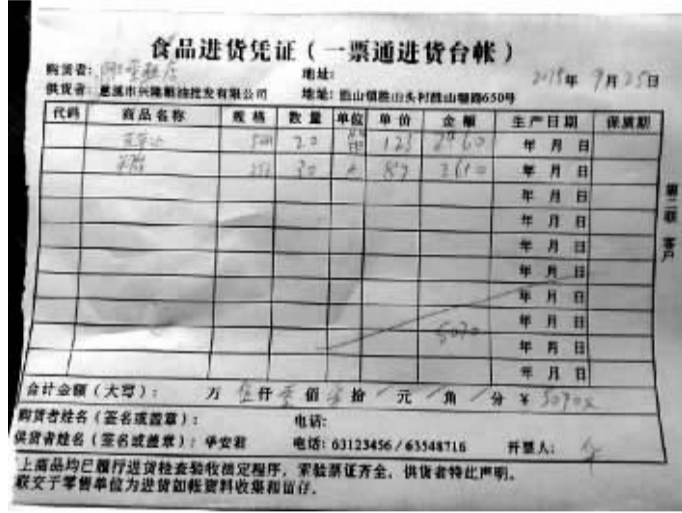 食品进货凭证（一票通进货台帐）
购货者： 地址： 2015年 9月25日
供货者：慈溪市兴隆粮油批发有限公司 地址：胜山镇胜山头村胜山塘路650号
代码 商品名称 规格 数量 单位 单价 金额 生产日期 保质期
20 123 2460 年 月 日
30 87 2610 年 月 日
年 月 日
年 月 日
年 月 日
年 月 日
年 月 日
年 月 日
5070 年 月 日
年 月 日
第二联 客户
合计金额（大写）： 万 伍仟 零佰 拾 元 角 分 ¥ 5070
购货者姓名（签名或盖章）： 电话：
供货者姓名（签名或盖章）：华安君 电话：63123456/63548716 开票人：
上商品均已履行进货检查验收法定程序，索验票证齐全，供货者特此声明。
联交于零售单位为进货如帐资料收集和留存。